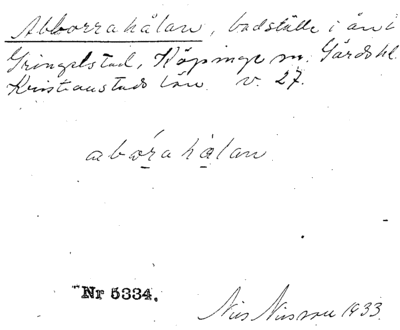 Abborrahålan, badställe i ån i
Gringelstad, Köpinge sn. Gärds hd.
Kristianstads län. v. 27.
abóra hålan
Nr 5334.
Nils Nilsson 1933.